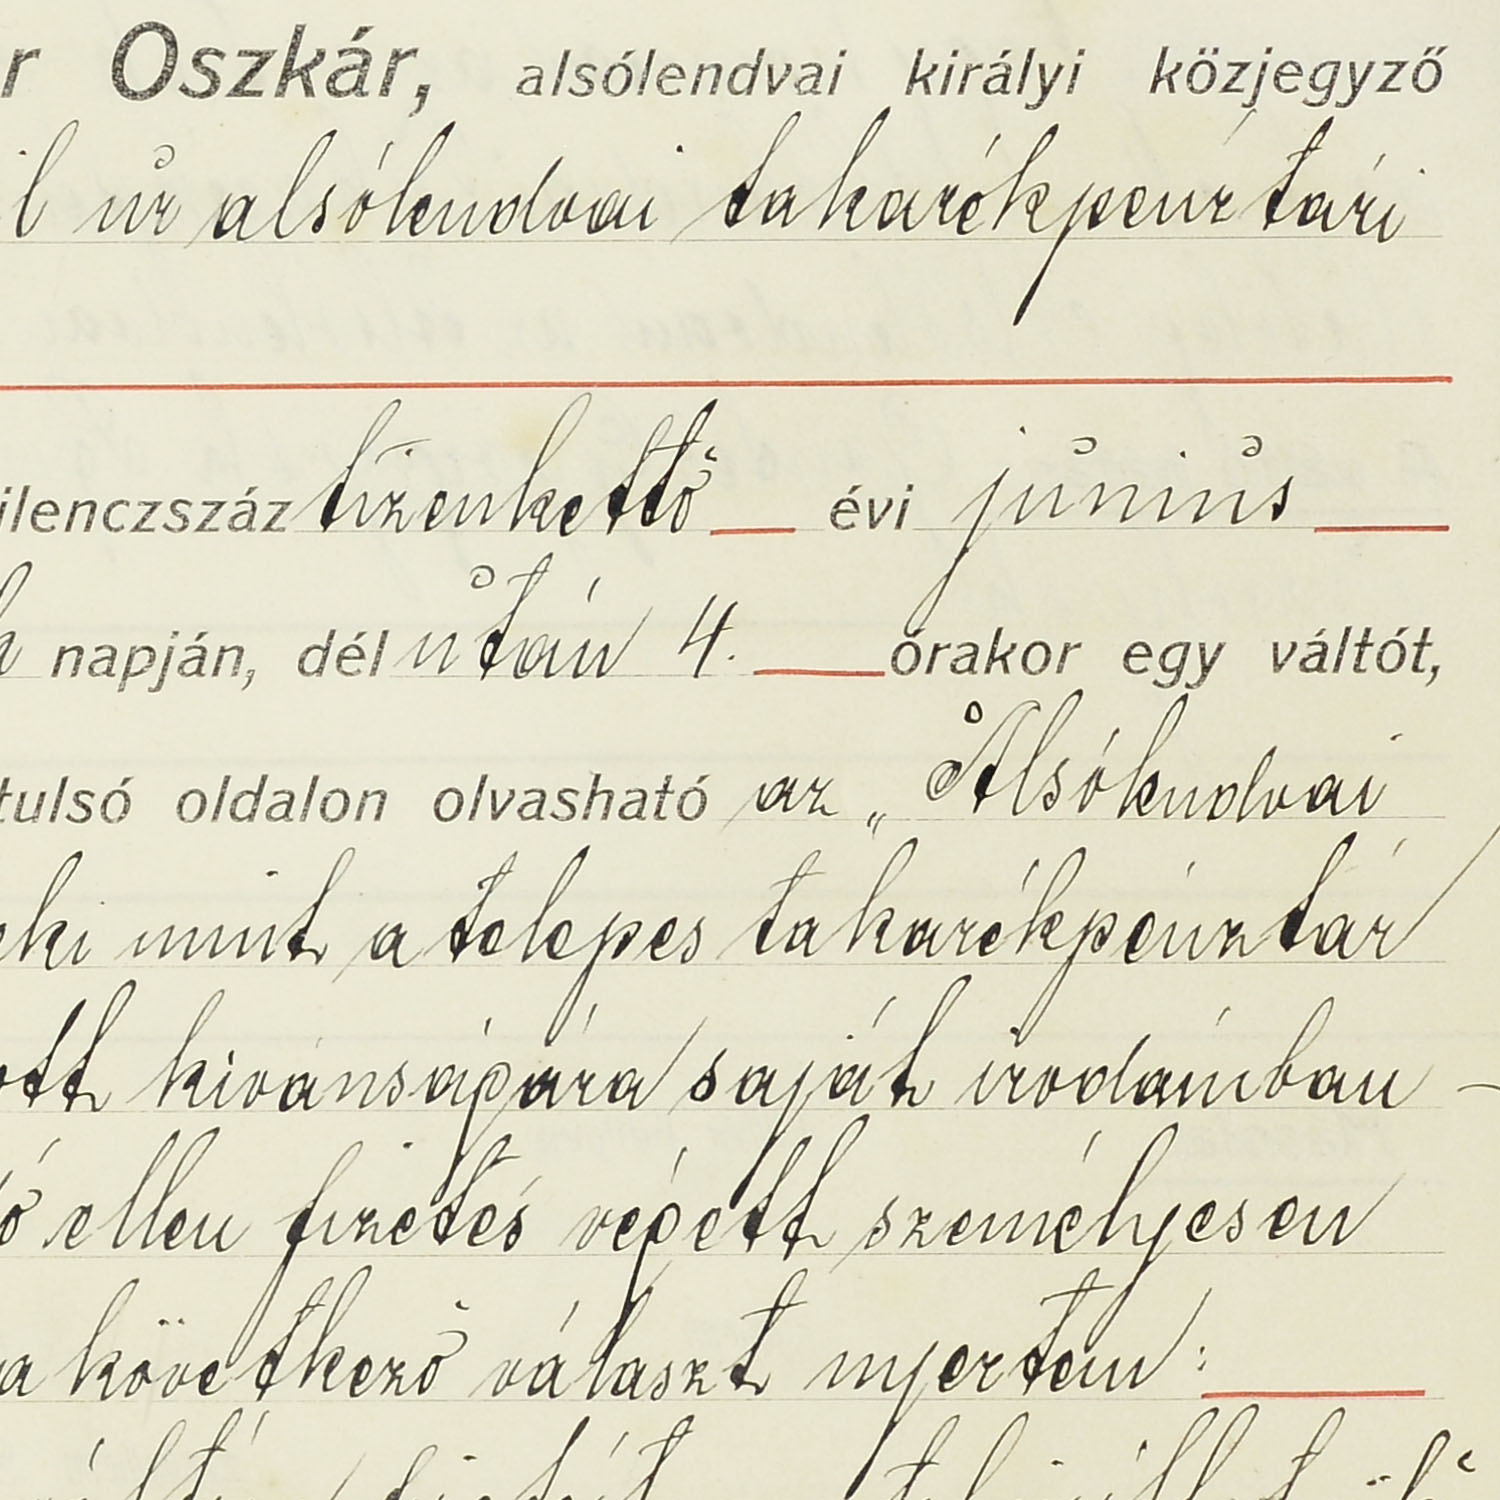 r Oszkár, alsólendvai királyi közjegyző
il úr alsólendvai takarékpénztári
ilenczszáz tizenkettő évi június
napján, dél után 4. órakor egy váltót,
tulsó oldalon olvasható az „Alsólendvai
eki mint a telepes takarékpénztár
ott kivánságára saját irodámban –
ó ellen fizetés végett személyesen
a következő választ nyertem: